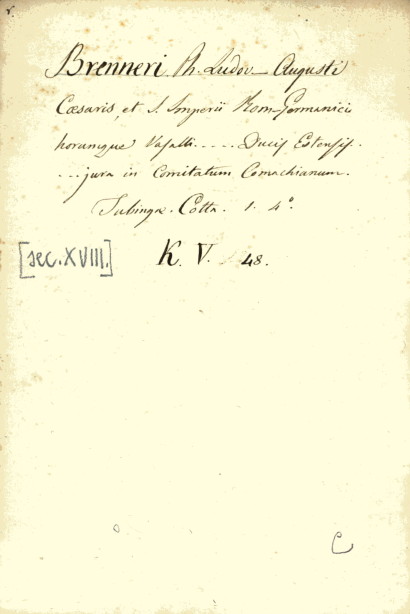 Brenneri Ph. Ludov— Augusti
Cæsaris, et S. Imperii Rom—Germanici
horumque Vasalli..... Ducis Estensis.
... jura in Comitatum Comachianum.
Tubingæ. Cotta. 1. 4°.
[sec. XVIII.] K. V. 48.
C